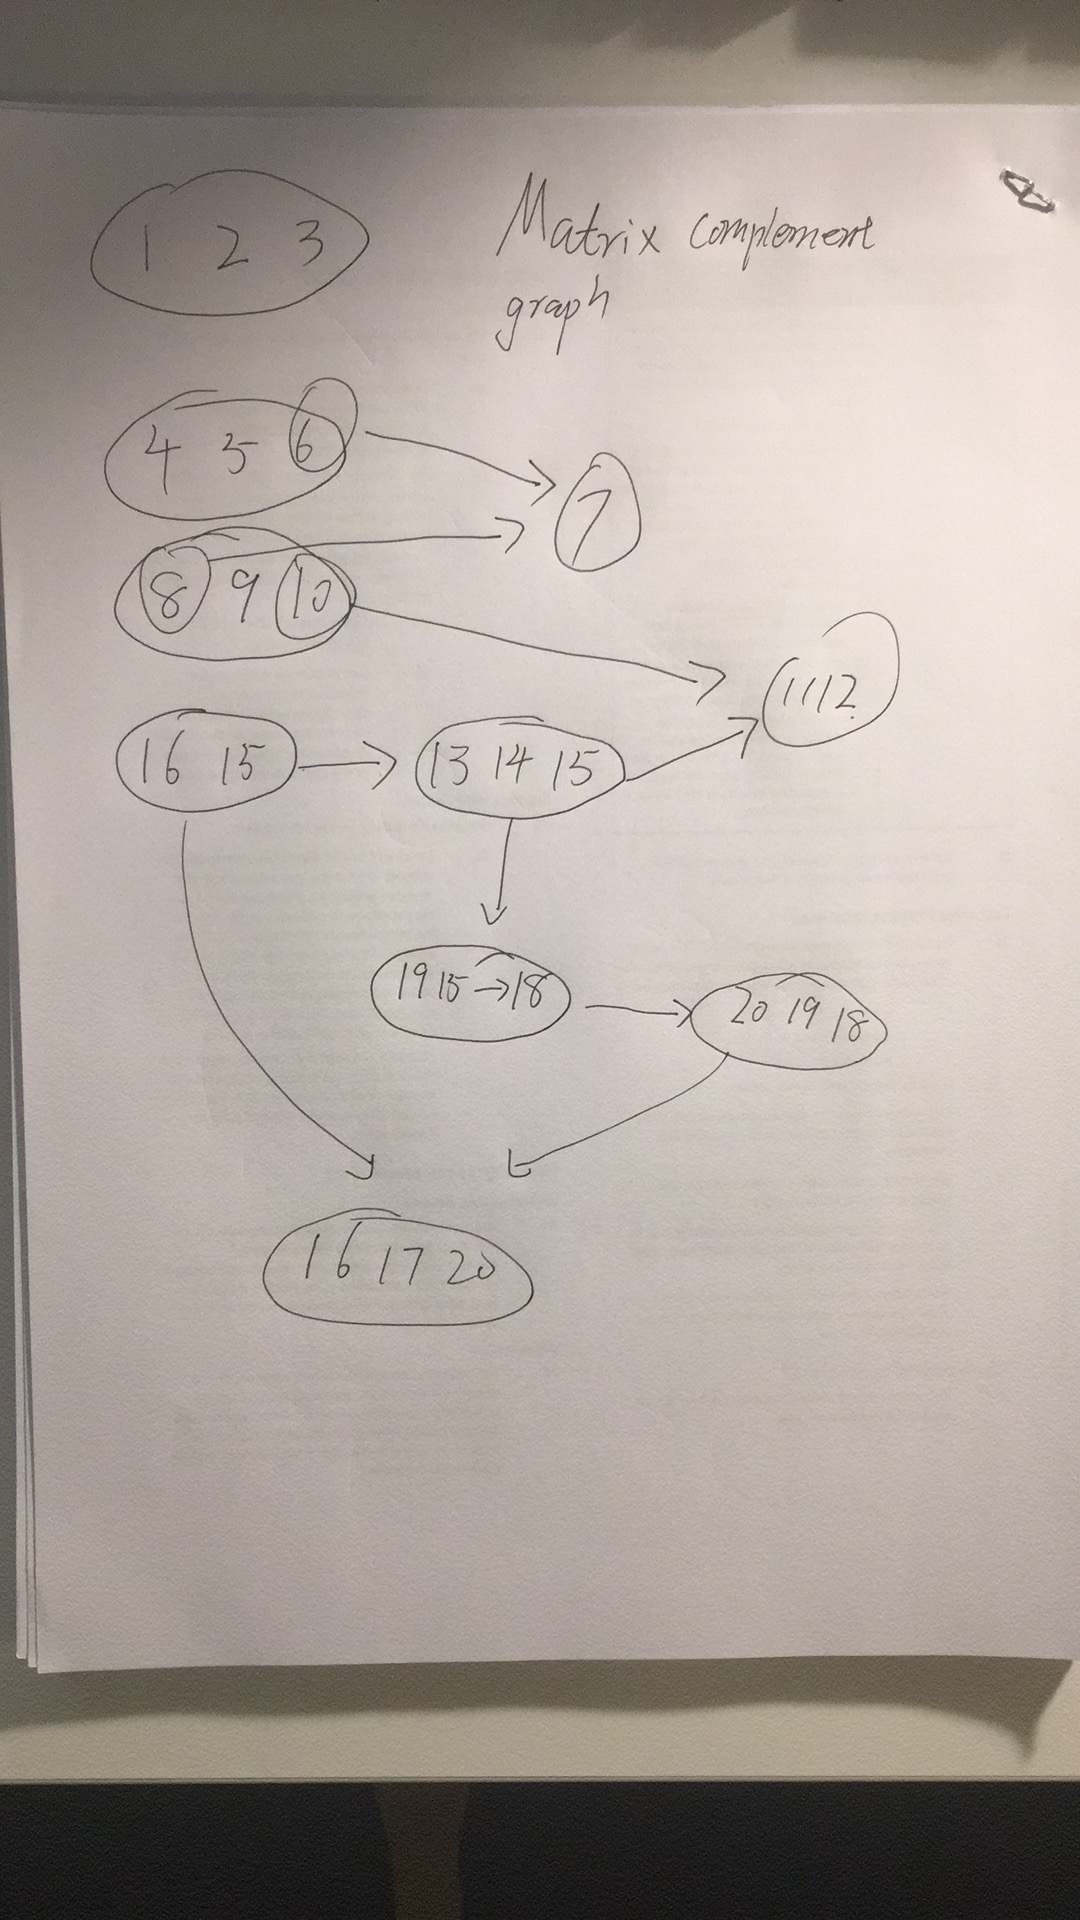 1 2 3
Matrix complement
graph
4 5 6
7
8 9 10
11 12
16 15
13 14 15
19 15 → 18
20 19 18
16 17 20